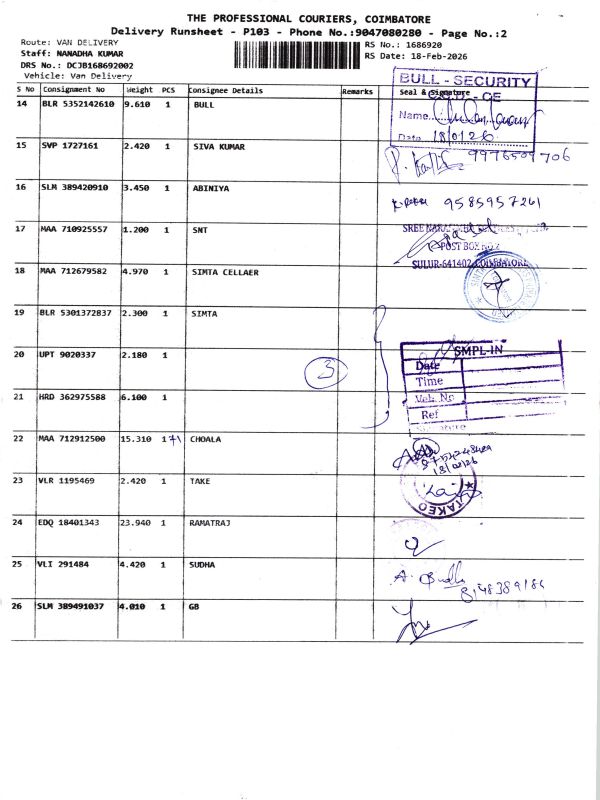 THE PROFESSIONAL COURIERS, COIMBATORE
Delivery Runsheet - P103 - Phone No.:9047080280 - Page No.:2
Route: VAN DELIVERY
Staff: NANADHA KUMAR
DRS No.: DCJB168692002
Vehicle: Van Delivery
RS No.: 1686920
RS Date: 18-Feb-2026
S No Consignment No Weight PCS Consignee Details Remarks Seal & Signature
14 BLR 5352142610 9.610 1 BULL
BULL - SECURITY
Name
Date 18/01/26
15 SVP 1727161 2.420 1 SIVA KUMAR
9976509706
16 SLM 389420910 3.450 1 ABINIYA
9585957261
17 MAA 710925557 1.200 1 SNT
POST BOX NO.2
SULUR-641402, COIMBATORE
18 MAA 712679582 4.970 1 SIMTA CELLAER
19 BLR 5301372837 2.300 1 SIMTA
20 UPT 9020337 2.180 1
3
SMPL-IN
Date
Time
Veh. No
Ref
Signature
21 HRD 362975588 6.100 1
22 MAA 712912500 15.310 1 CHOALA
18/02/26
23 VLR 1195469 2.420 1 TAKE
TAKEO
24 EDQ 18401343 23.940 1 RAMATRAJ
25 VLI 291484 4.420 1 SUDHA
26 SLM 389491037 4.010 1 GB